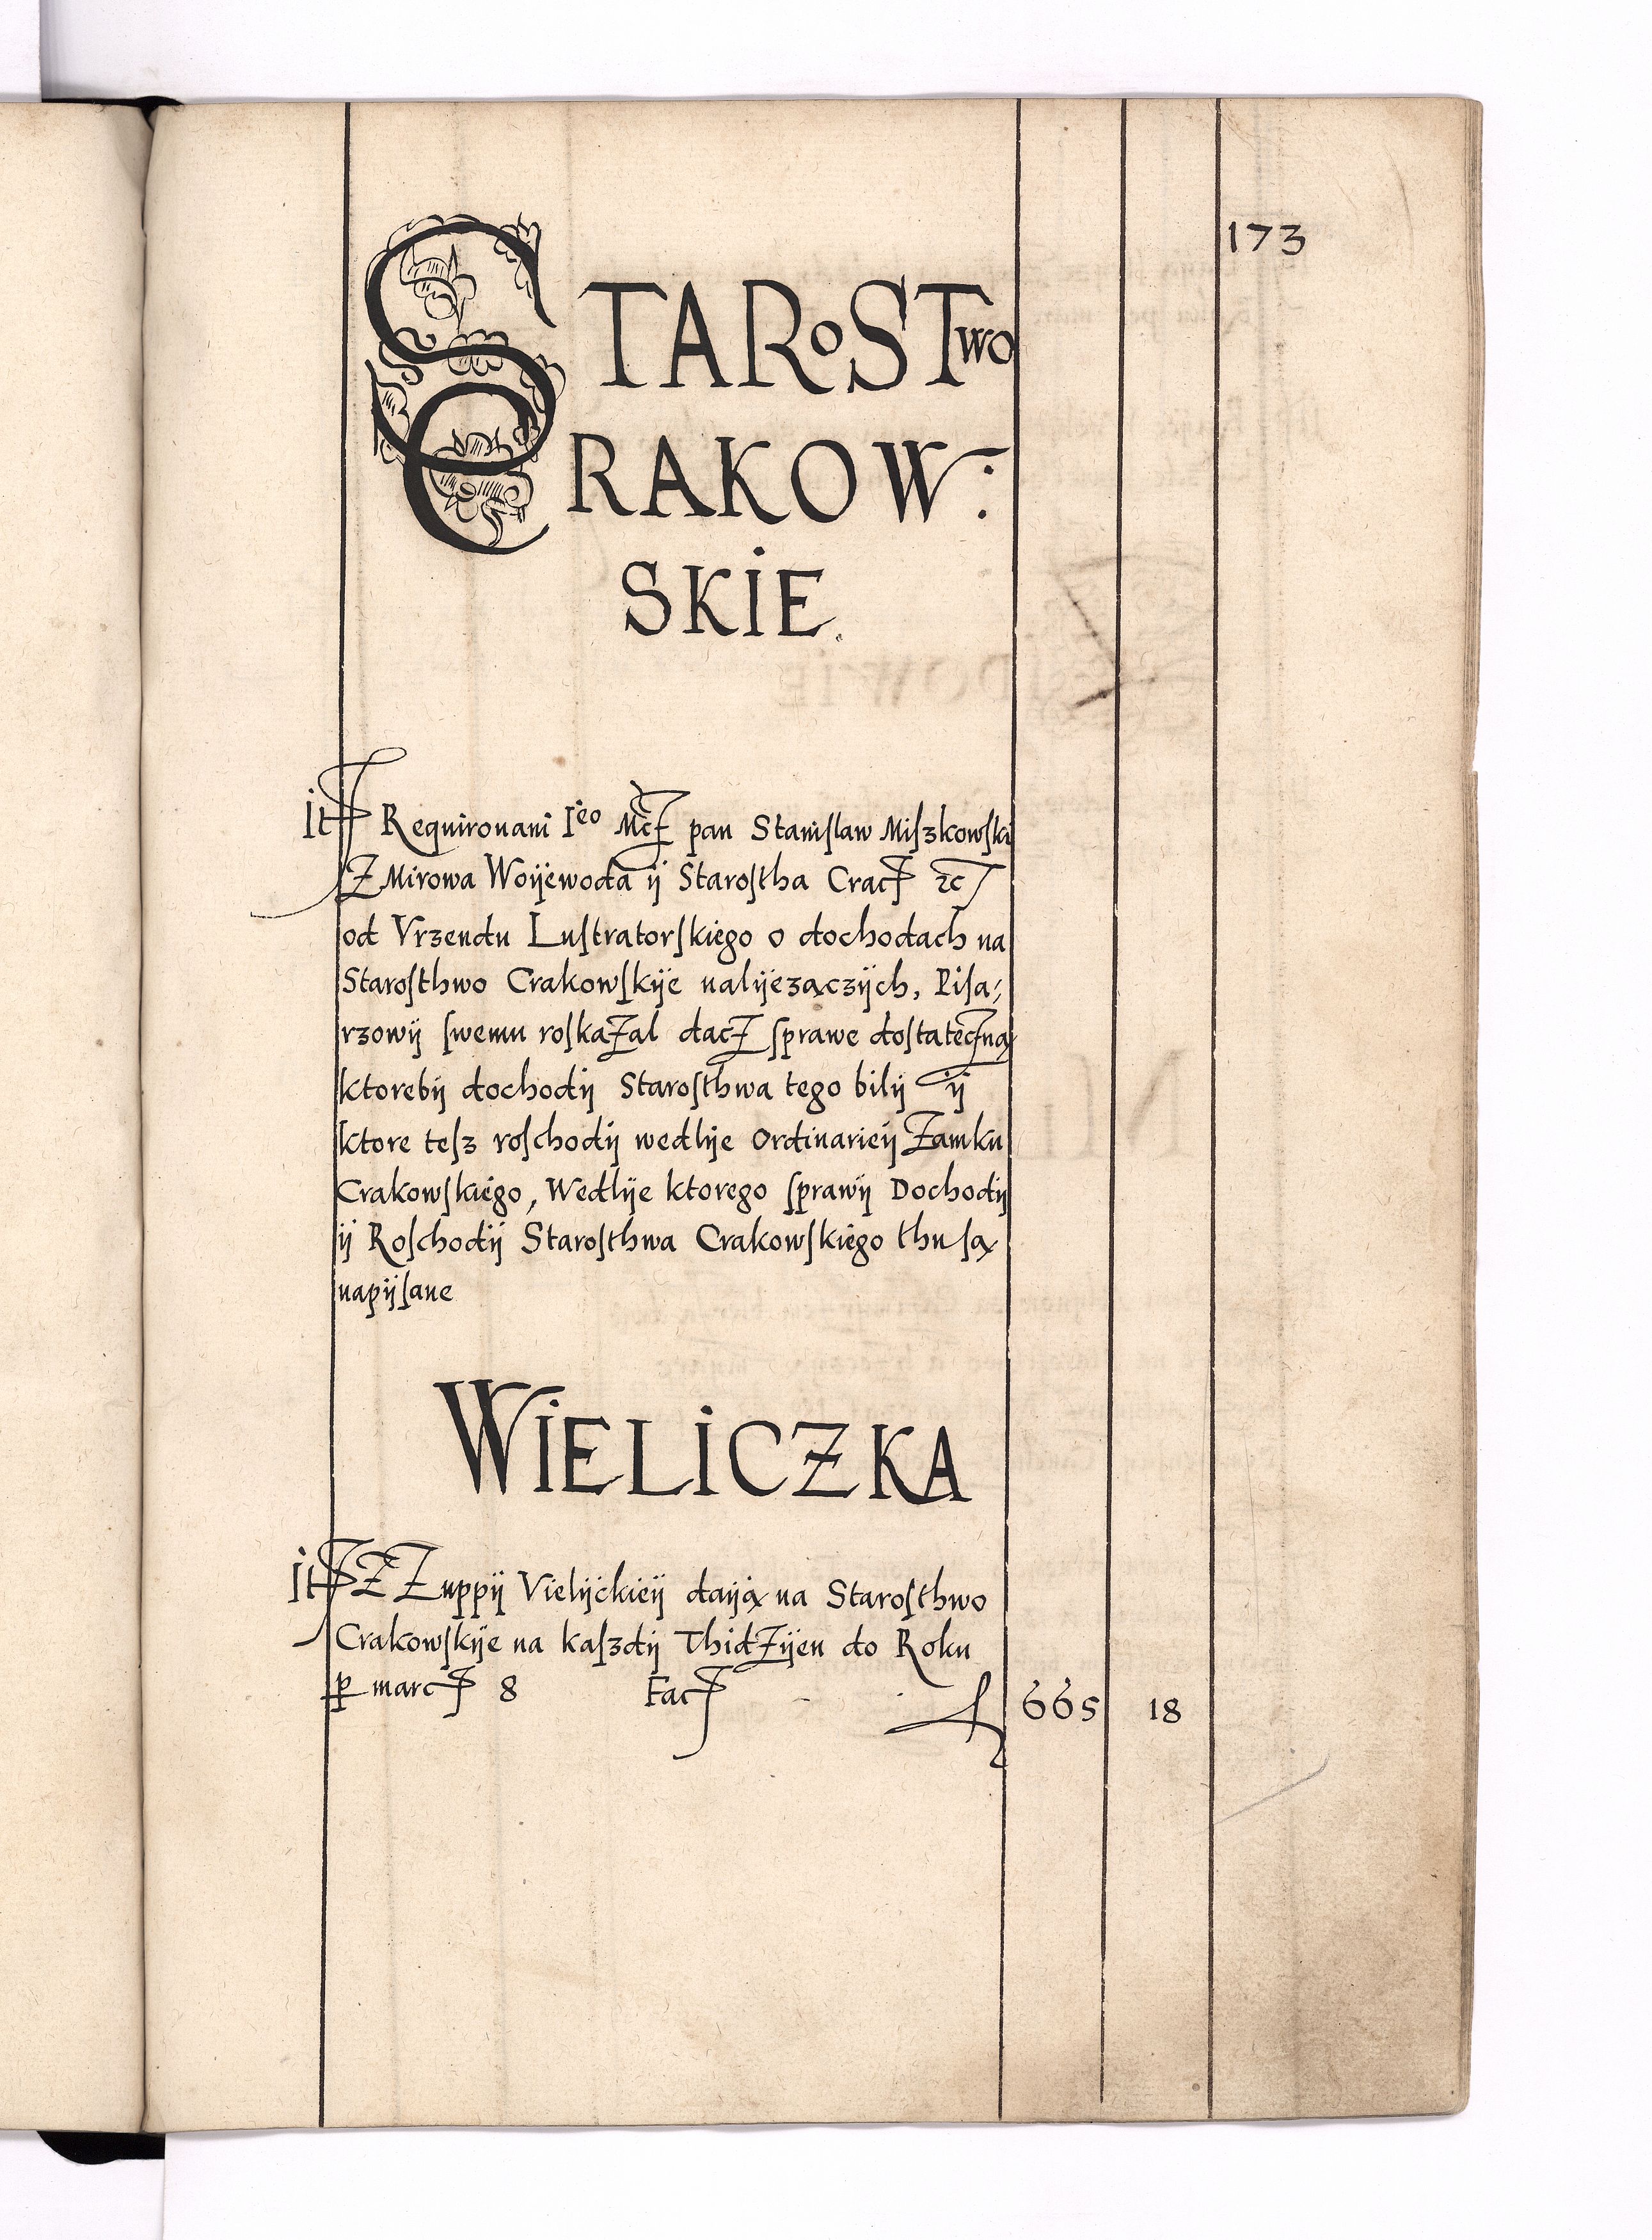 173
STAROSTwo
CRAKOW:
SKIE.
It Requirovani Ieo Mcz pan Staniſlaw Miſzkowſki
Z Mirowa Woijewoda ij Staroſtha Crac ꝛc
od Vrzendu Luſtratorſkiego o dochodach na
Staroſthwo Crakowſkije nalijezaczijch, Piſa⸗
rzowij ſwemu roſkaZal dacZ ſprawe doſtateczną
ktorebij dochodij Staroſthwa tego bilij ij
ktore teſz roſchodij wedlije Ordinarieij Zamku
Crakowſkiego, Wedlije ktorego ſprawij Dochodij
ij Roſchodij Staroſthwa Crakowſkiego thu ſą
napijſane
WIELICZKA
It Z Zuppij Vielijckieij daiją na Staroſthwo
Crakowſkije na kaſzdij ThidZijen do Roku
ꝑ marc 8 Fac fl 665 18